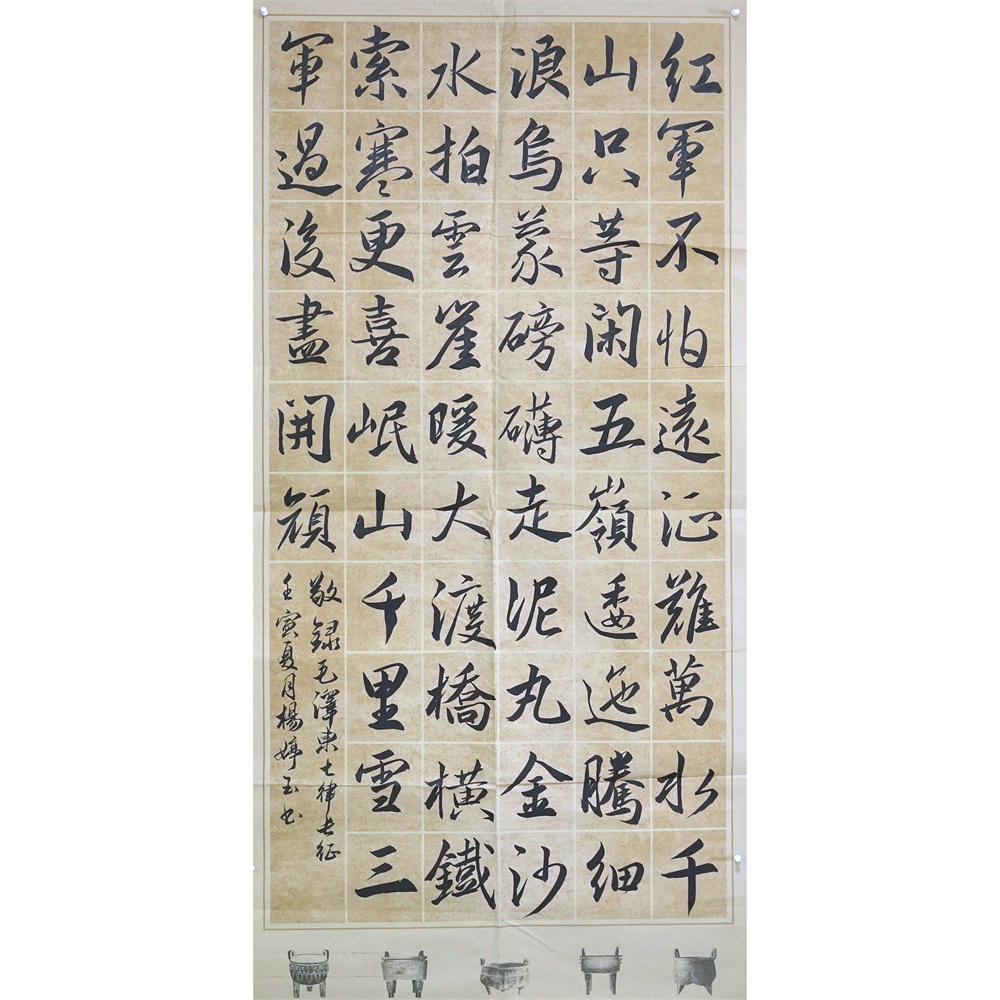 紅軍不怕遠征難萬水千
山只等闲五嶺逶迤騰細
浪烏蒙磅礴走泥丸金沙
水拍雲崖暖大渡橋橫鐵
索寒更喜岷山千里雪三
軍過後盡開顔
敬録毛澤東七律長征
壬寅夏月楊婷玉书